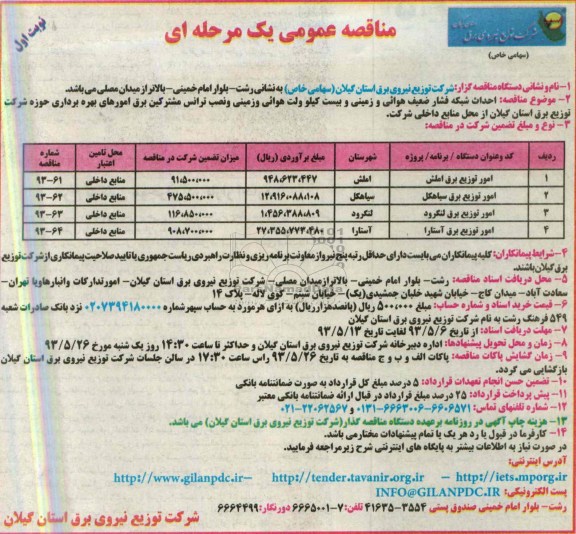 نوبت اول
مناقصه عمومی یک مرحله ای
شرکت توزیع نیروی برق
(سهامی خاص)
۱- نام و نشانی دستگاه مناقصه گزار: شرکت توزیع نیروی برق استان گیلان (سهامی خاص) به نشانی رشت- بلوار امام خمینی- بالاتر از میدان مصلی می باشد.
۲- موضوع مناقصه: احداث شبکه فشار ضعیف هوائی و زمینی و بیست کیلو ولت هوائی وزمینی ونصب ترانس مشترکین برق امورهای بهره برداری حوزه شرکت
توزیع برق استان گیلان از محل منابع داخلی شرکت.
۳- نوع و مبلغ تضمین شرکت در مناقصه:
ردیف کد وعنوان دستگاه / برنامه/ پروژه شهرستان مبلغ برآوردی (ریال) میزان تضمین شرکت در مناقصه محل تامین اعتبار شماره مناقصه
۱ امور توزیع برق املش املش ۹۴۸،۶۲۳،۴۴۷ ۹۱،۵۰۰،۰۰۰ منابع داخلی ۹۳-۶۱
۲ امور توزیع برق سیاهکل سیاهکل ۱۲،۹۱۶،۰۸۸،۱۰۸ ۴۷۵،۵۰۰،۰۰۰ منابع داخلی ۹۳-۶۲
۳ امور توزیع برق لنگرود لنگرود ۱،۴۵۶،۳۸۸،۸۰۹ ۱۱۶،۸۵۰،۰۰۰ منابع داخلی ۹۳-۶۳
۴ امور توزیع برق آستارا آستارا ۲۷،۳۵۵،۷۷۳،۴۸۰ ۹۰۸،۷۰۰،۰۰۰ منابع داخلی ۹۳-۶۴
۴- شرایط پیمانکاران: کلیه پیمانکاران می بایست دارای حداقل رتبه پنج نیرو از معاونت برنامه ریزی و نظارت راهبردی ریاست جمهوری با تایید صلاحیت پیمانکاری از شرکت توزیع
برق گیلان باشند.
۵- محل دریافت اسناد مناقصه: رشت- بلوار امام خمینی- بالاتر از میدان مصلی- شرکت توزیع نیروی برق استان گیلان- امور تدارکات وانبارها ویا تهران-
سعادت آباد- میدان کاج- خیابان شهید خلبان جمشیدی (یک)- خیابان شبنم- کوی لاله- پلاک ۱۴
۶- قیمت خرید اسناد و شماره حساب: مبلغ ۵۰۰،۰۰۰ ریال (پانصدهزارریال) به ازای هرمورد به حساب سپهرشماره ۰۲۰۷۳۹۴۱۸۰۰۰۰ نزد بانک صادرات شعبه
۵۴۹ فرهنگ رشت به نام شرکت توزیع نیروی برق استان گیلان
۷- مهلت دریافت اسناد: از تاریخ ۹۳/۵/۶ لغایت تاریخ ۹۳/۵/۱۳
۸- زمان و محل تحویل پیشنهادها: اداره دبیرخانه شرکت توزیع نیروی برق استان گیلان و حداکثر تا ساعت ۱۴:۳۰ روز یک شنبه مورخ ۹۳/۵/۲۶
۹- زمان گشایش پاکات مناقصه: پاکات الف و ب و ج مناقصه به تاریخ ۹۳/۵/۲۶ راس ساعت ۱۷:۳۰ در سالن جلسات شرکت توزیع نیروی برق استان گیلان
بازگشایی می گردد.
۱۰- تضمین حسن انجام تعهدات قرارداد: ۵ درصد مبلغ کل قرارداد به صورت ضمانتنامه بانکی
۱۱- پیش پرداخت قرارداد: ۲۵ درصد مبلغ قرارداد در قبال ارائه ضمانتنامه بانکی معتبر
۱۲- شماره تلفنهای تماس: ۶۶۰۶۵۷۱-۶۶۶۳۰۰۶-۰۱۳۱ و ۲۲۰۶۲۵۶۷-۰۲۱
۱۳- هزینه چاپ آگهی در روزنامه برعهده دستگاه مناقصه گذار (شرکت توزیع نیروی برق استان گیلان) می باشد.
۱۴- کارفرما در قبول یا رد هر یک یا تمام پیشنهادات مختار می باشد.
در صورت نیاز به اطلاعات بیشتر به پایگاه های اینترنتی شرح زیر مراجعه فرمایید.
آدرس اینترنتی:
http://www.gilanpdc.ir– http://tender.tavanir.org.ir – http://iets.mporg.ir
پست الکترونیکی: INFO@GILANPDC.IR
رشت- بلوار امام خمینی صندوق پستی ۳۵۵۴-۴۱۶۳۵ تلفن: ۷-۶۶۶۵۰۰۱ دورنگار: ۶۶۶۴۴۹۹
شرکت توزیع نیروی برق استان گیلان